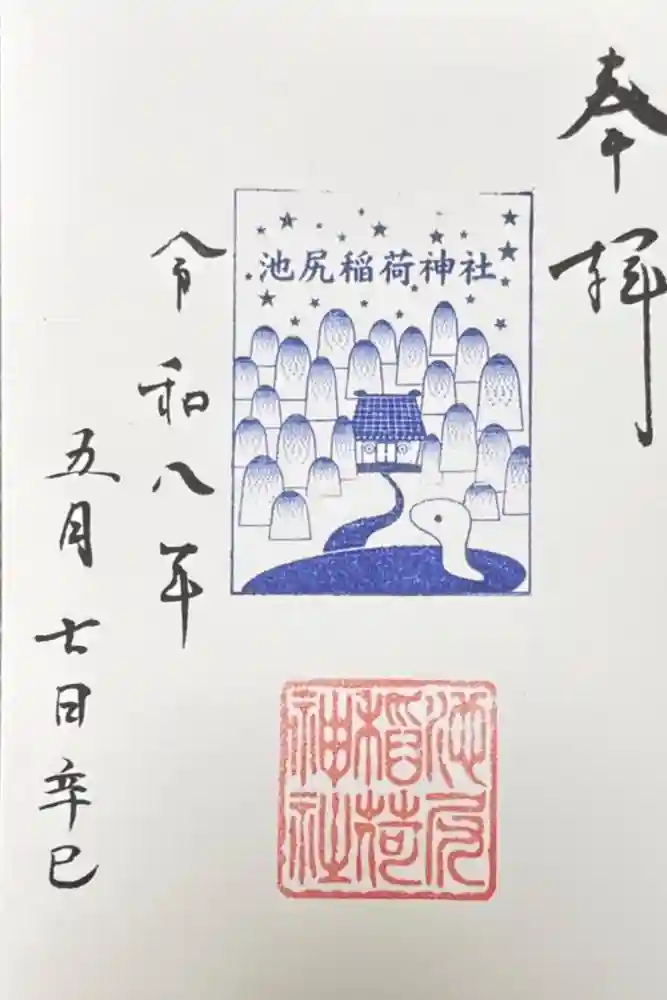 奉拝
池尻稲荷神社
池尻
稲荷
神社
令和八年
五月七日辛巳